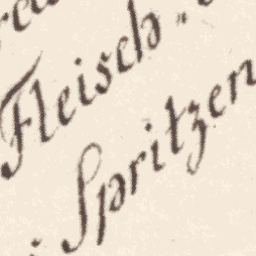 Fleisch
Spritzen